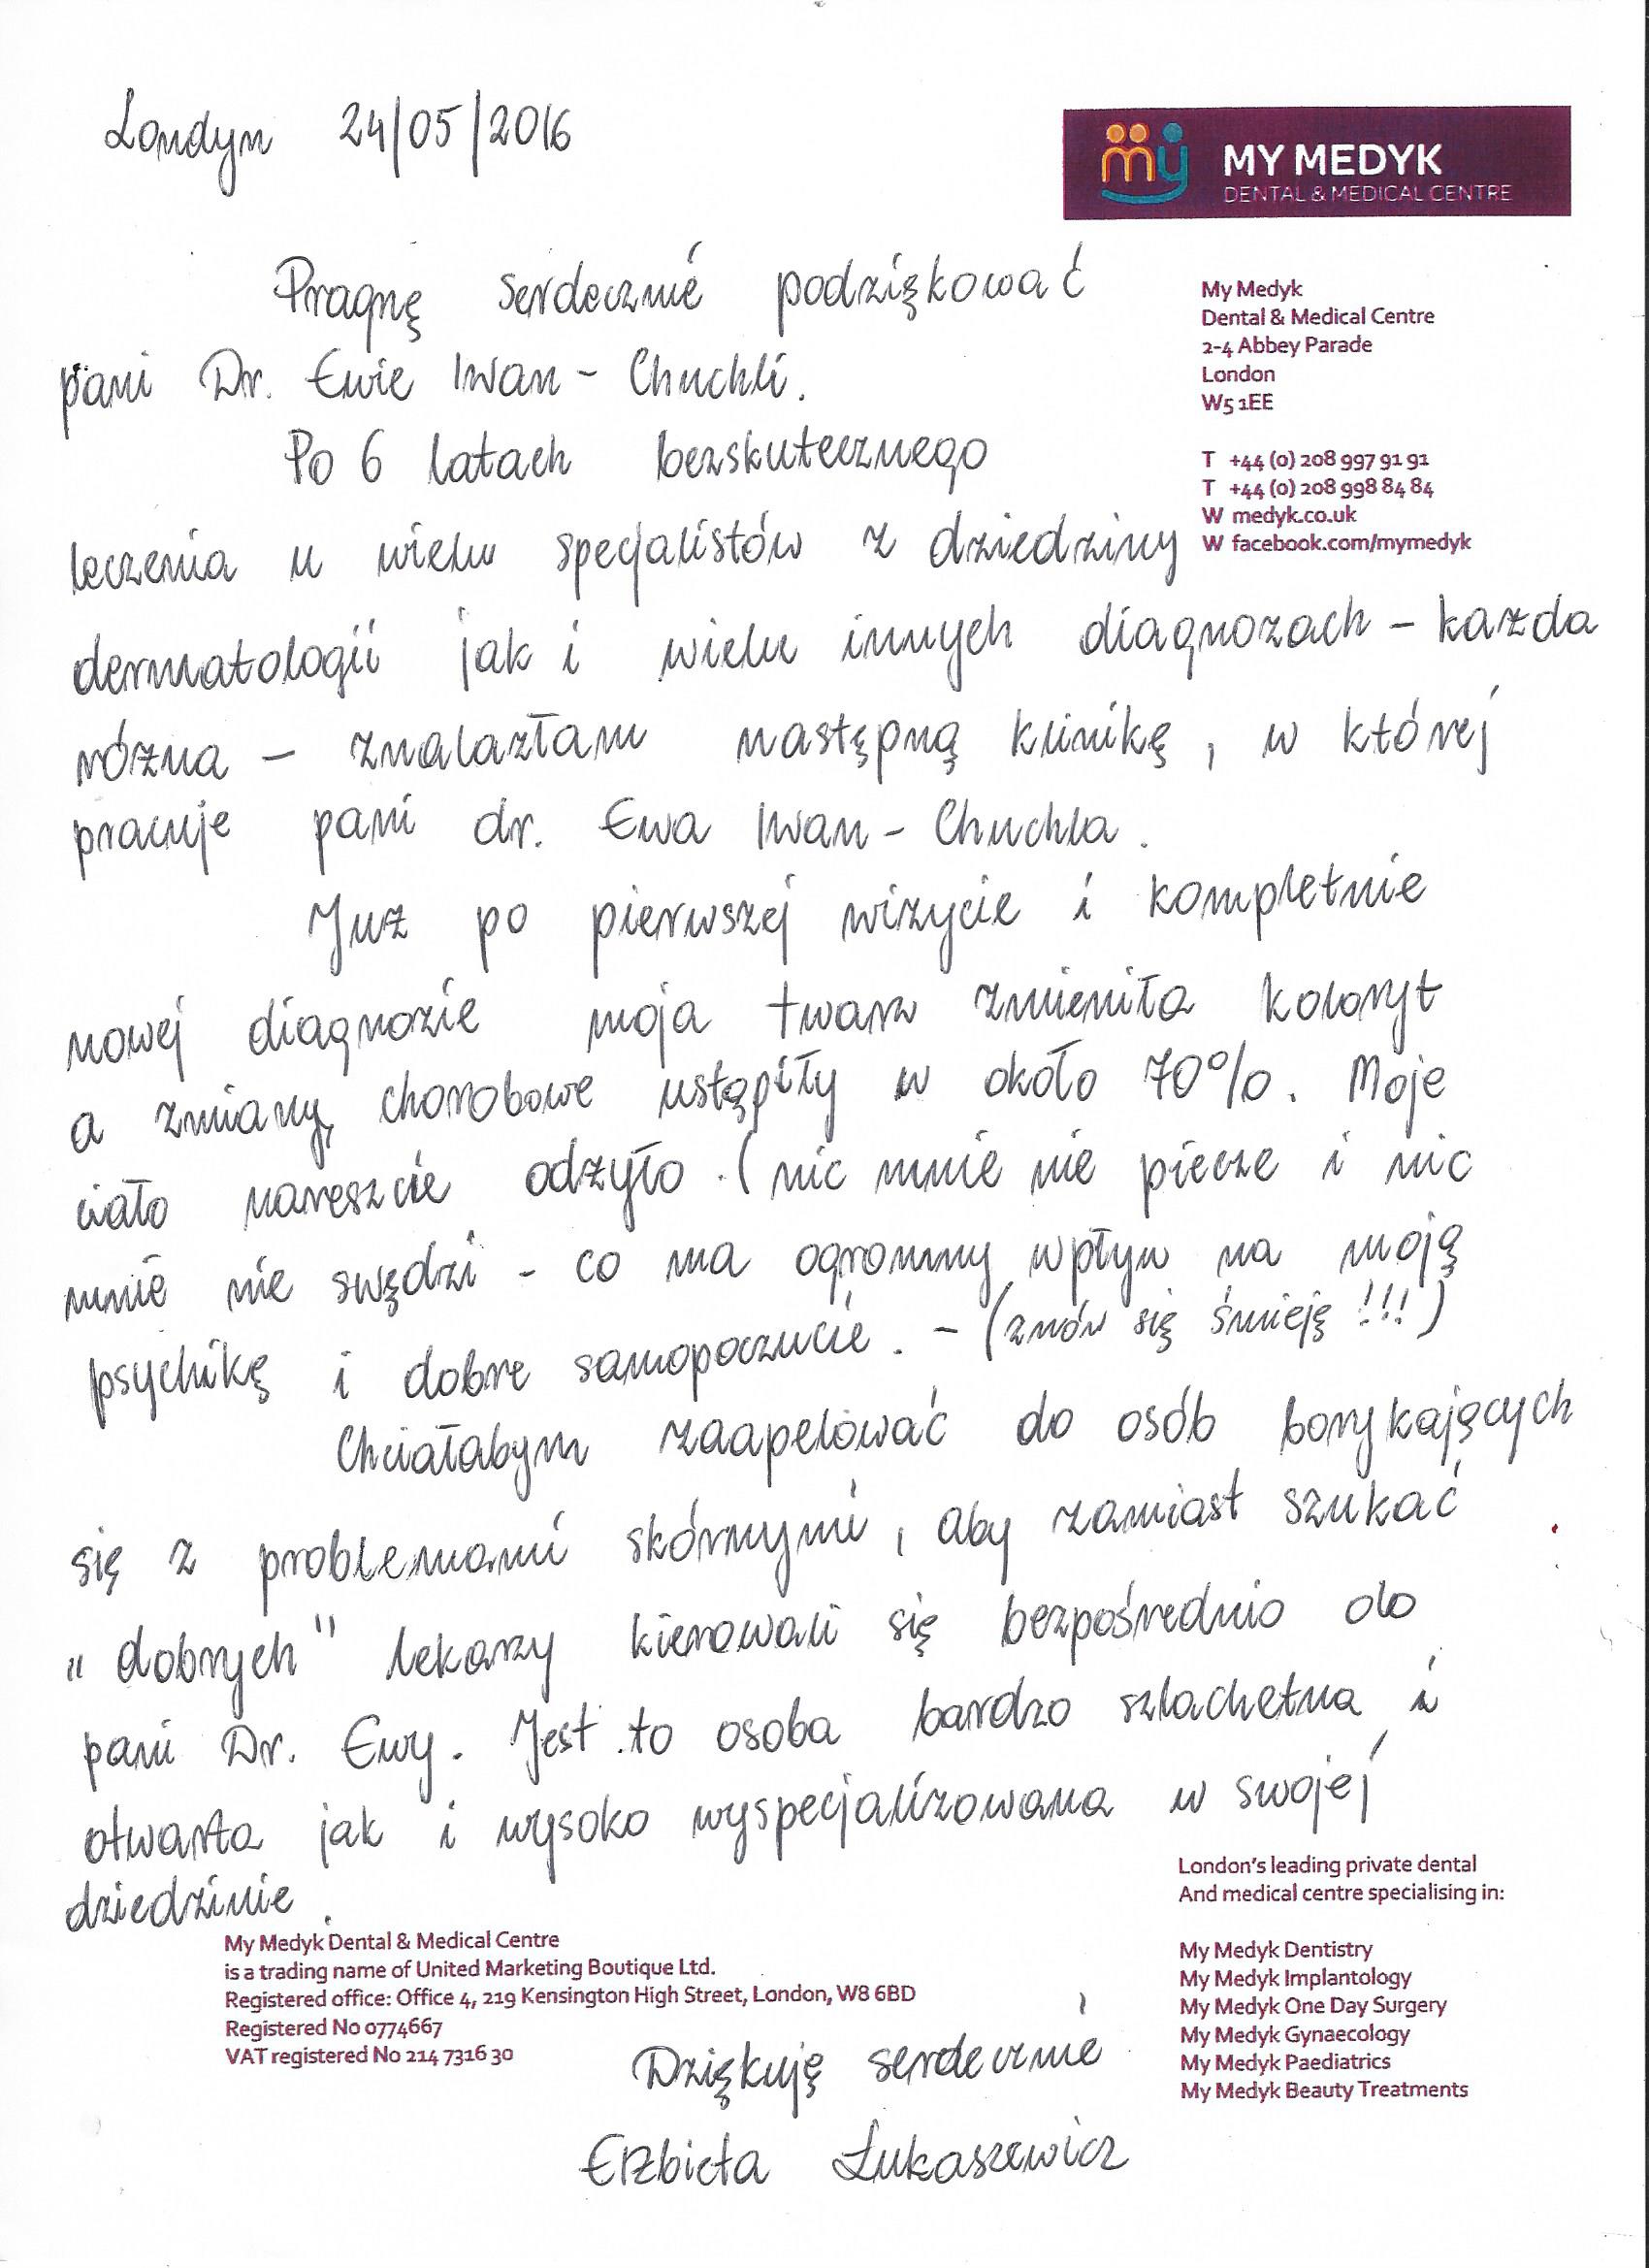 Londyn 24/05/2016
my MY MEDYK
DENTAL & MEDICAL CENTRE
My Medyk
Dental & Medical Centre
2-4 Abbey Parade
London
W5 1EE
T +44 (0) 208 997 91 91
T +44 (0) 208 998 84 84
W medyk.co.uk
W facebook.com/mymedyk
Pragnę serdecznie podziękować
pani Dr. Ewie Iwan - Chuchli.
Po 6 latach bezskutecznego
leczenia u wielu specjalistów z dziedziny
dermatologii jak i wielu innych diagnozach - każda
różna - znalazłam następną klinikę, w której
pracuje pani dr. Ewa Iwan - Chuchla.
Już po pierwszej wizycie i kompletnie
nowej diagnozie moja twarz zmieniła koloryt
a zmiany chorobowe ustąpiły w około 70%. Moje
ciało nareszcie odżyło. (nic mnie nie piecze i nic
mnie nie swędzi - co ma ogromny wpływ na moją
psychikę i dobre samopoczucie. - (znów się śmieję !!!)
Chciałabym zaapelować do osób borykających
się z problemami skórnymi, aby zamiast szukać
„dobrych" lekarzy kierowali się bezpośrednio do
pani Dr. Ewy. Jest to osoba bardzo szlachetna i
otwarta jak i wysoko wyspecjalizowana w swojej
dziedzinie.
My Medyk Dental & Medical Centre
is a trading name of United Marketing Boutique Ltd.
Registered office: Office 4, 219 Kensington High Street, London, W8 6BD
Registered No 0774667
VAT registered No 214 7316 30
London's leading private dental
And medical centre specialising in:
My Medyk Dentistry
My Medyk Implantology
My Medyk One Day Surgery
My Medyk Gynaecology
My Medyk Paediatrics
My Medyk Beauty Treatments
Dziękuję serdecznie
Elżbieta Łukaszewicz